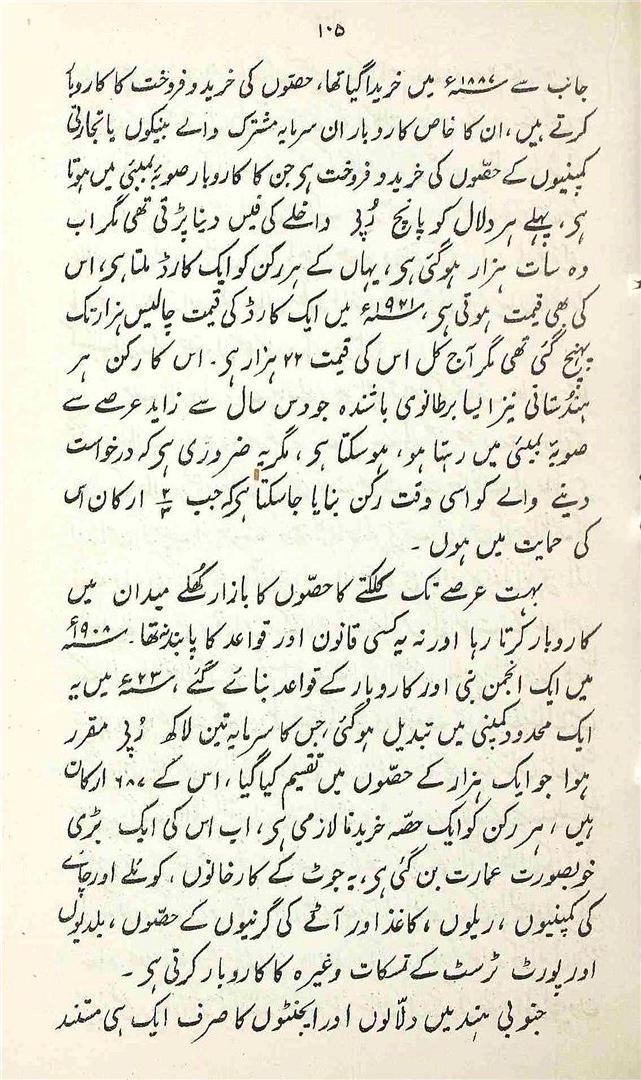 ۱۰۵
جانب سے ۱۸۸۷ء میں خریدا گیا تھا، حصّوں کی خرید و فروخت کا کاروبار
کرتے ہیں، ان کا خاص کاروبار ان سرمایہ مشترک والے بینکوں یا تجارتی
کمپنیوں کے حصّوں کی خرید و فروخت ہی جن کا کاروبار صوبۂ بمبئی میں ہوتا
ہی، پہلے ہر دلال کو پانچ رُپی داخلے کی فیس دینا پڑتی تھی مگر اب
وہ سات ہزار ہوگئی ہی، یہاں کے ہر رکن کو ایک کارڈ ملتا ہی، اس
کی بھی قیمت ہوتی ہی، ۱۹۲۱ء میں ایک کارڈ کی قیمت چالیس ہزار تک
پہنچ گئی تھی مگر آج کل اس کی قیمت ۲۲ ہزار ہی۔ اس کا رکن ہر
ہندُستانی نیز ایسا برطانوی باشندہ جو دس سال سے زاید عرصے سے
صوبۂ بمبئی میں رہتا ہو، ہوسکتا ہی، مگر یہ ضروری ہی کہ درخواست
دینے والے کو اسی وقت رکن بنایا جاسکتا ہی کہ جب ارکان اس
کی حمایت میں ہوں۔
بہت عرصے تک کلکتے کا حصّوں کا بازار کُھلے میدان میں
کاروبار کرتا رہا اور نہ یہ کسی قانون اور قواعد کا پابند تھا۔ ۱۹۰۸ء
میں ایک انجمن بنی اور کاروبار کے قواعد بنائے گئے، ۲۳ء میں یہ
ایک محدود کمپنی میں تبدیل ہوگئی جس کا سرمایہ تین لاکھ رُپی مقرر
ہوا جو ایک ہزار کے حصّوں میں تقسیم کیا گیا، اس کے ۶۸۷ ارکان
ہیں، ہر رکن کو ایک حصّہ خریدنا لازمی ہی، اب اس کی ایک بڑی
خوبصورت عمارت بن گئی ہی، یہ جوٹ کے کارخانوں، کوئلے اور چاے
کی کمپنیوں، ریلوں، کاغذ اور آٹے کی گرنیوں کے حصّوں، بلدیوں
اور پورٹ ٹرسٹ کے تمسکات وغیرہ کا کاروبار کرتی ہی۔
جنوبی ہند میں دلّالوں اور ایجنٹوں کا صرف ایک ہی مستند